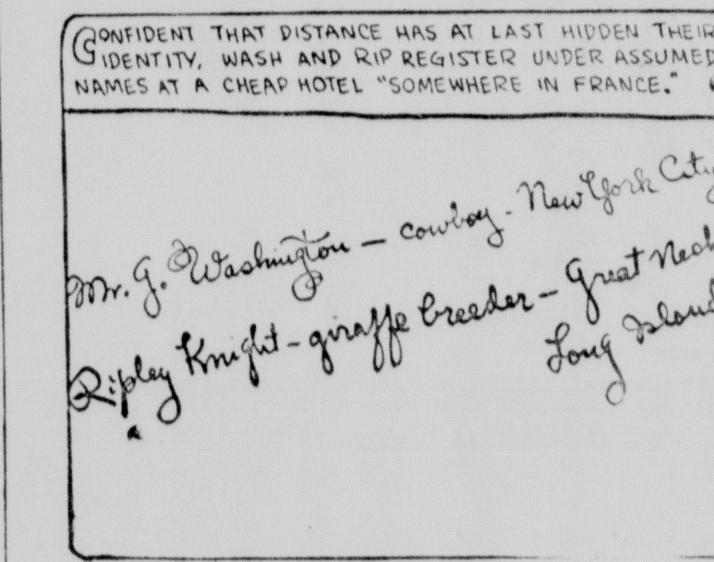 CONFIDENT THAT DISTANCE HAS AT LAST HIDDEN THEIR
IDENTITY, WASH AND RIP REGISTER UNDER ASSUMED
NAMES AT A CHEAP HOTEL "SOMEWHERE IN FRANCE."
Mr. G. Washington — cowboy - New York City
Ripley Knight - giraffe breeder - Great Neck
Long Island